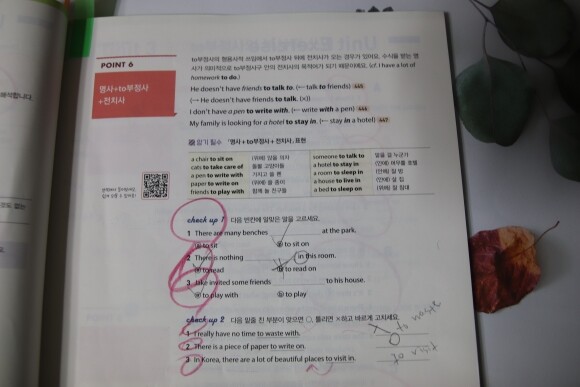 POINT 6
명사+to부정사
+전치사
to부정사의 형용사적 쓰임에서 to부정사 뒤에 전치사가 오는 경우가 있어요. 수식을 받는 명
사가 의미적으로 to부정사구 안의 전치사의 목적어가 되기 때문이에요. (cf. I have a lot of
homework to do.)
He doesn't have friends to talk to. (← talk to friends) 445
(→ He doesn't have friends to talk. (×))
I don't have a pen to write with. (← write with a pen) 446
My family is looking for a hotel to stay in. (← stay in a hotel) 447
암기 필수 「명사+to부정사+전치사」 표현
a chair to sit on (위에) 앉을 의자
cats to take care of 돌볼 고양이들
a pen to write with 가지고 쓸 펜
paper to write on (위에) 쓸 종이
friends to play with 함께 놀 친구들
someone to talk to 말을 걸 누군가
a hotel to stay in (안에) 머무를 호텔
a room to sleep in (안에) 잘 방
a house to live in (안에) 살 집
a bed to sleep on (위에) 잘 침대
check up 1 다음 빈칸에 알맞은 말을 고르세요.
1 There are many benches ________ at the park.
ⓐ to sit ⓑ to sit on
2 There is nothing ________ in this room.
ⓐ to read ⓑ to read on
3 Jake invited some friends ________ to his house.
ⓐ to play with ⓑ to play
check up 2 다음 밑줄 친 부분이 맞으면 ○, 틀리면 ×하고 바르게 고치세요.
1 I really have no time to waste with.
2 There is a piece of paper to write on.
3 In Korea, there are a lot of beautiful places to visit in.